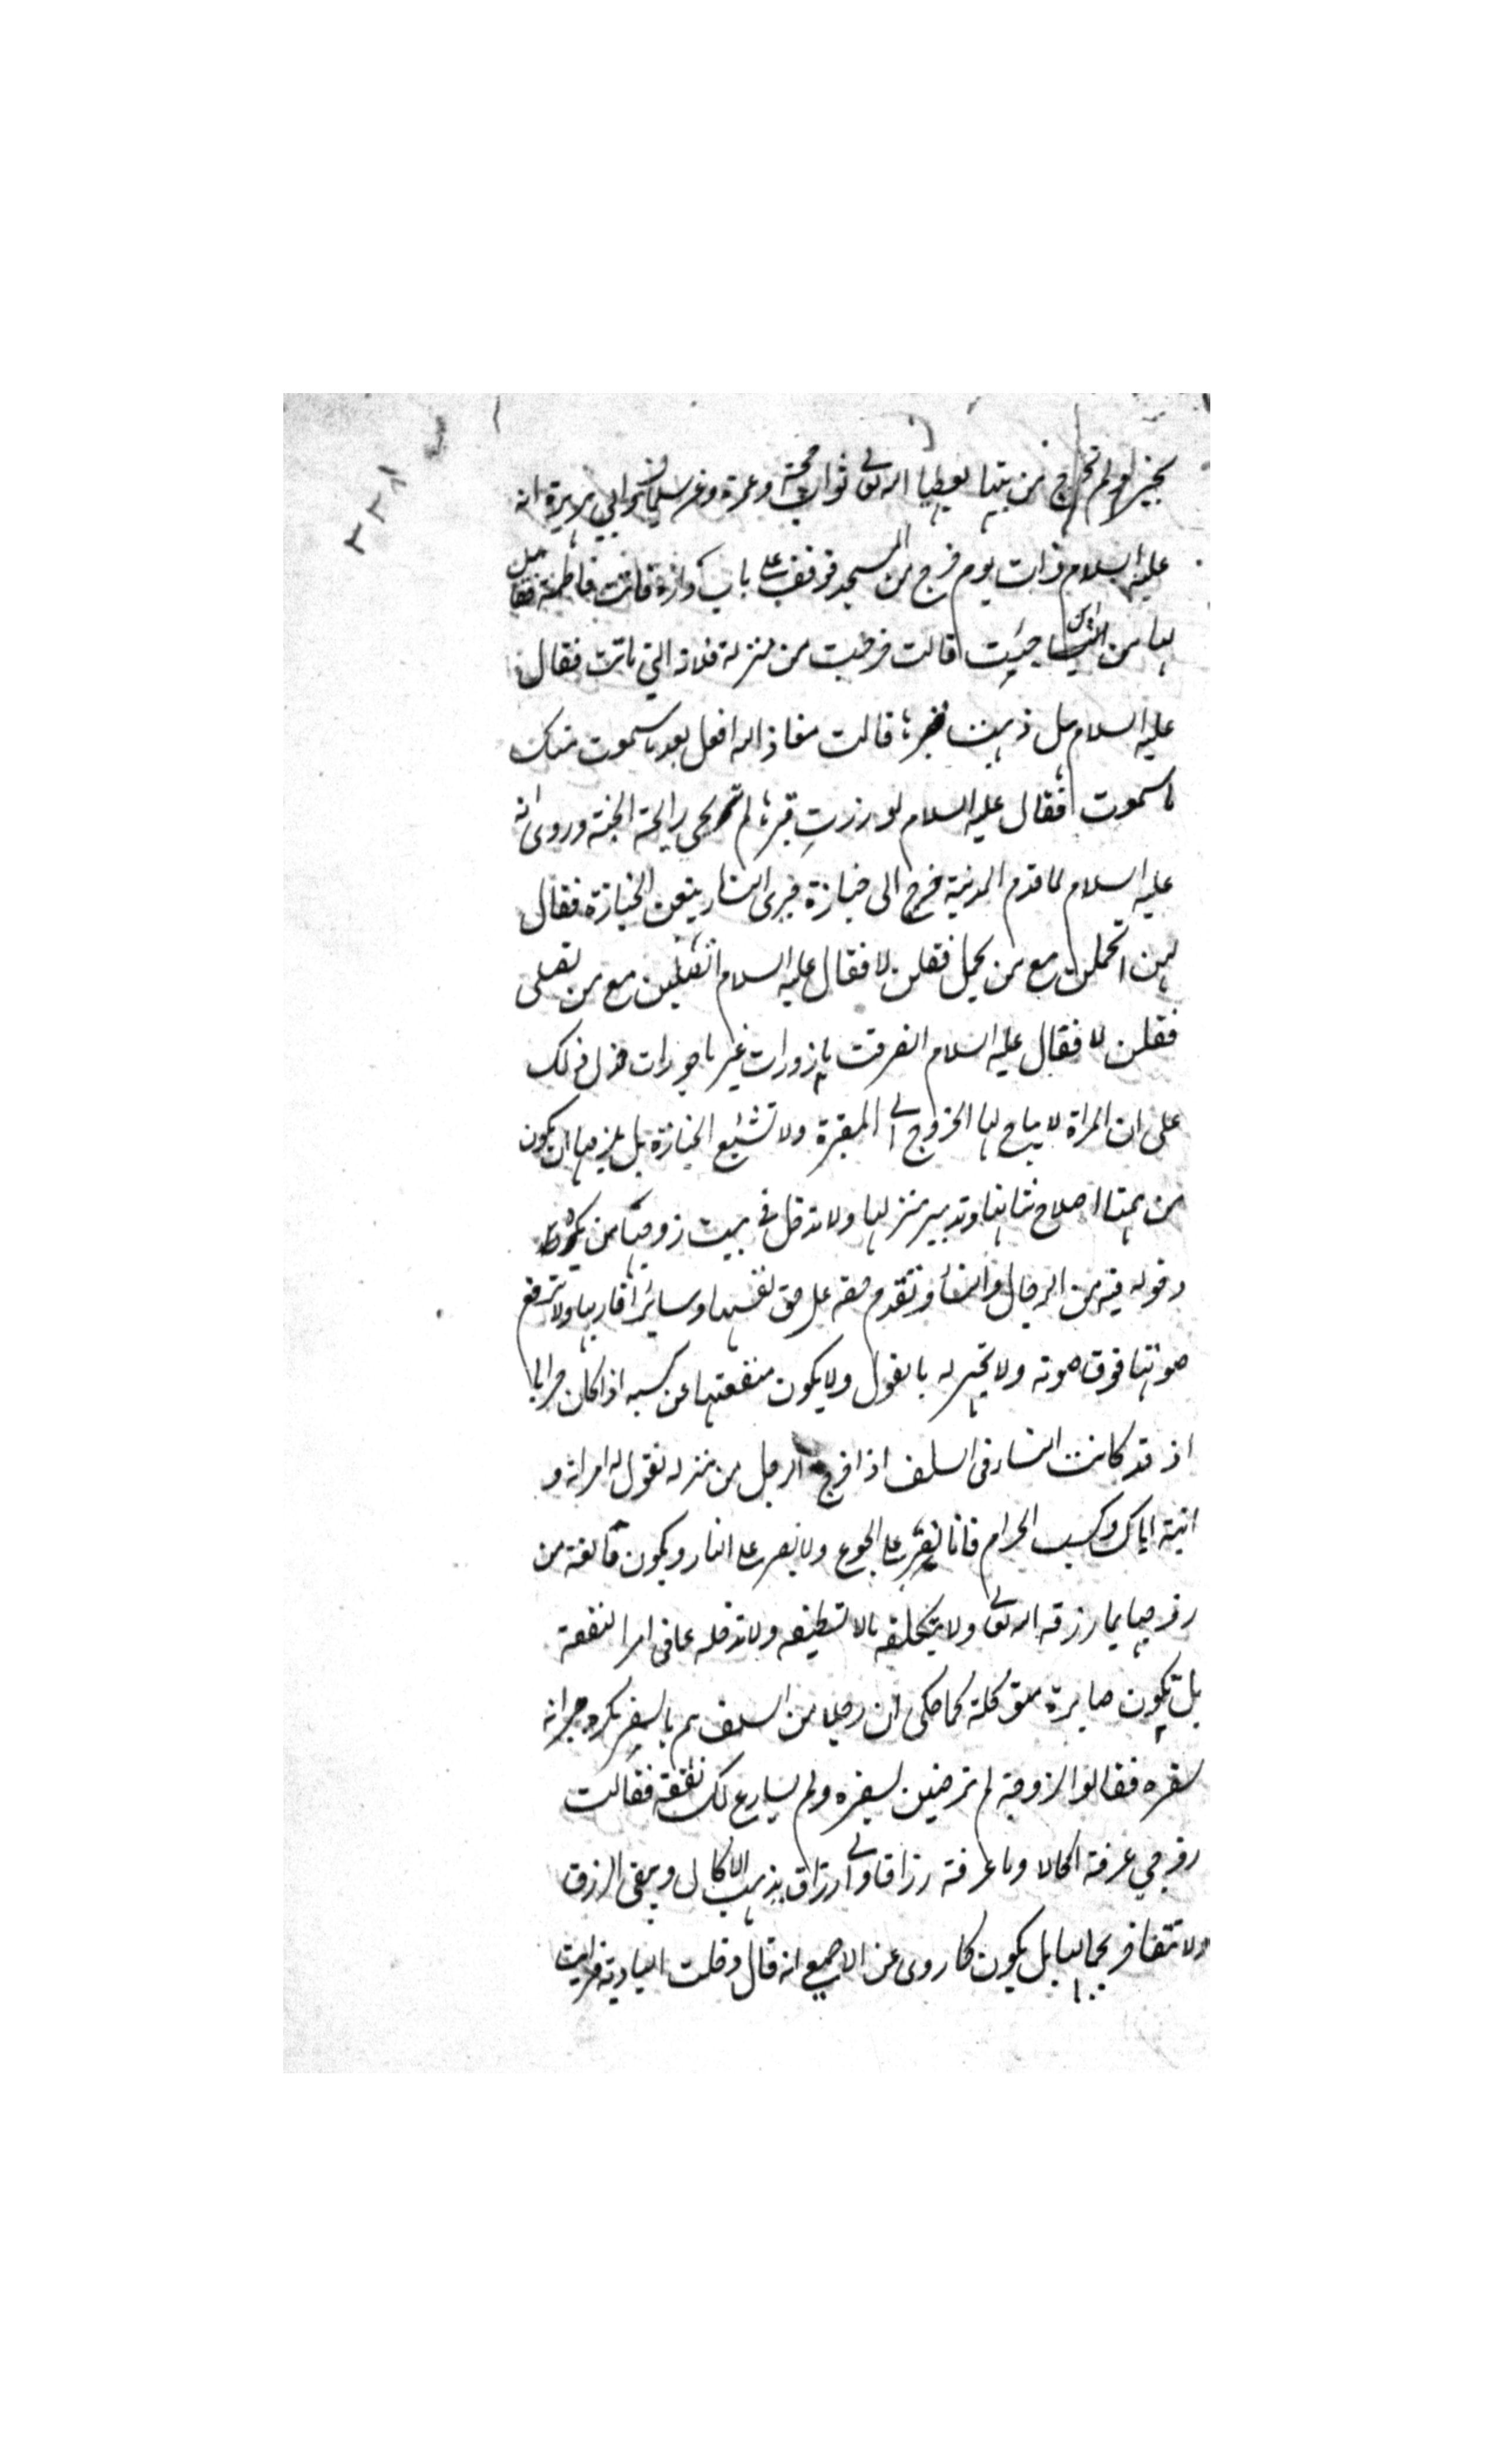 بخير ولم تخرج من بيتها يعطيها الله تعالى ثواب حجة وعمرة وعن سلمان وابي هريرة انه
عليه السلام ذات يوم خرج من المسجد فوقف على باب داره فاتت فاطمة فقال
لها من اين جئت قالت خرجت من منزلة فلانة التي ماتت فقال
عليه السلام هل ذهبت قبرها قالت معاذ الله افعل بعد ما سمعت منك
ما سمعت فقال عليه السلام لو زرت قبرها لم تريحي رايحة الجنة وروى انه
عليه السلام لما قدم المدينة خرج الى جنازة فيرى النساء يتبعن الجنازة فقال
لهن اتحملن مع من يحمل فقلن لا فقال عليه السلام اتصلين مع من يصلى
فقلن لا فقال عليه السلام انصرفن مازورات غير ماجورات فدل ذلك
على ان المراة لا يباح لها الخروج الى المقبرة ولا تشيع الجنازة بل يلزمها ان يكون
من همتها اصلاح شانها وتدبير منزلها ولا تدخل في بيت زوجها من يكره
دخوله فيه من الرجال والنساء وتقدم حقه على حق نفسها وسائر اقاربها ولا ترفع
صوتها فوق صوته ولا تجهر له بالقول ولا يكون منفعتها عن كسبه اذا كان حراما
اذ قد كانت النساء في السلف اذا خرج الرجل من منزله تقول له امراته و
ابنته اياك وكسب الحرام فانا نصبر على الجوع ولا نصبر على النار ويكون قانعة من
زوجها بما رزقه الله تعالى ولا يتكلفه ما لا تطيقه ولا تدخله عافى امر النفقة
بل يكون صابرة متوكلة كما حكى ان رجلا من السلف هم بالسفر فكره جيرانه
سفره فقالوا لزوجته لم ترضين لسفره ولم يدع لك نفقة فقالت
زوجي عرفته اكالا وما عرفته رزاقا ولى رزاق يذهب الاكال ويبقى الرزاق
ولا تتفاخر بجمالها بل يكون كما روى عن الاصمعي انه قال دخلت البادية فرايت